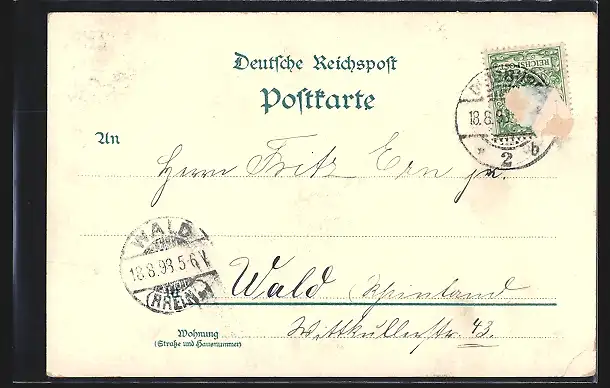 Deutsche Reichspost
Postkarte
REICHSPOST
18.8.98
2 b
An
Herrn Fritz Ern jr.
WALD
18.8.98 5-6 V
(RHEINL)
Wald Rheinland
Wittkullerstr 43.
Wohnung
(Straße und Hausnummer)